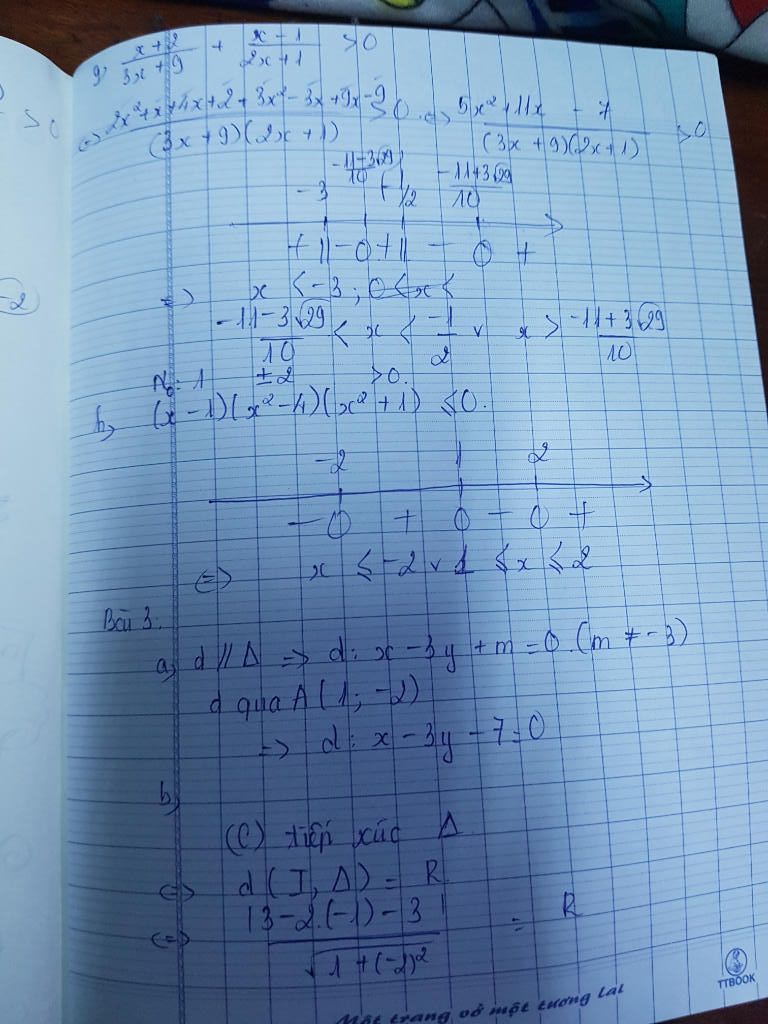 g, (x+2)/(3x+9) + (x-1)/(2x+1) > 0
<=> (2x²+x+4x+2+3x²-3x+9x-9)/((3x+9)(2x+1)) > 0. <=> (5x²+11x-7)/((3x+9)(2x+1)) > 0
-3 (-11-3√29)/10 -1/2 (-11+3√29)/10
+ || - 0 + || - 0 +
=> x < -3 ; 0 < x <
(-11-3√29)/10 < x < -1/2 v x > (-11+3√29)/10
N₀: 1 ±2 >0.
h, (x-1)(x²-4)(x²+1) ≤ 0.
-2 1 2
- 0 + 0 - 0 +
<=> x ≤ -2 v 1 ≤ x ≤ 2
Bài 3.
a, d // Δ => d: x - 3y + m = 0. (m ≠ -3)
d qua A(1; -2)
=> d: x - 3y - 7 = 0
b,
(C) tiếp xúc Δ
<=> d(I, Δ) = R
<=> |3-2.(-1)-3|/√(1+(-2)²) = R
TTBOOK
Một trang vở một tương lai